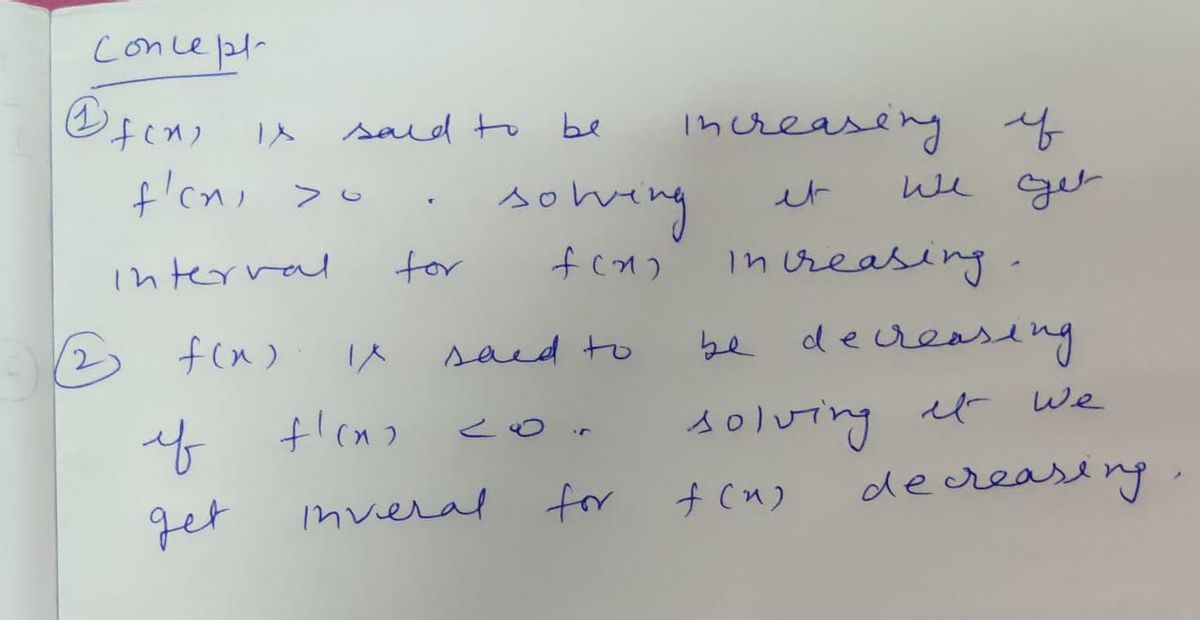 Concept
① f(x) is said to be increasing if
f'(x) > 0 . solving it we get
interval for f(x) increasing.
② f(x) is said to be decreasing
if f'(x) < 0 . solving it we
get inveral for f(x) decreasing.